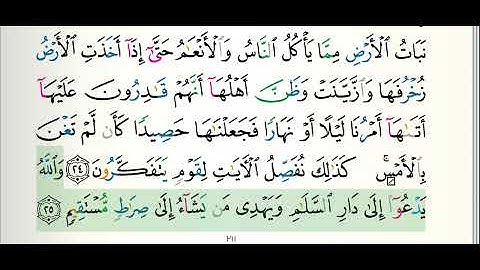 نَبَاتُ ٱلْأَرْضِ مِمَّا يَأْكُلُ ٱلنَّاسُ وَٱلْأَنْعَٰمُ حَتَّىٰٓ إِذَآ أَخَذَتِ ٱلْأَرْضُ
زُخْرُفَهَا وَٱزَّيَّنَتْ وَظَنَّ أَهْلُهَآ أَنَّهُمْ قَٰدِرُونَ عَلَيْهَآ
أَتَىٰهَآ أَمْرُنَا لَيْلًا أَوْ نَهَارًا فَجَعَلْنَٰهَا حَصِيدًا كَأَن لَّمْ تَغْنَ
بِٱلْأَمْسِ ۚ كَذَٰلِكَ نُفَصِّلُ ٱلْءَايَٰتِ لِقَوْمٍ يَتَفَكَّرُونَ ٢٤ وَٱللَّهُ
يَدْعُوٓا۟ إِلَىٰ دَارِ ٱلسَّلَٰمِ وَيَهْدِى مَن يَشَآءُ إِلَىٰ صِرَٰطٍ مُّسْتَقِيمٍ ٢٥
٢١١